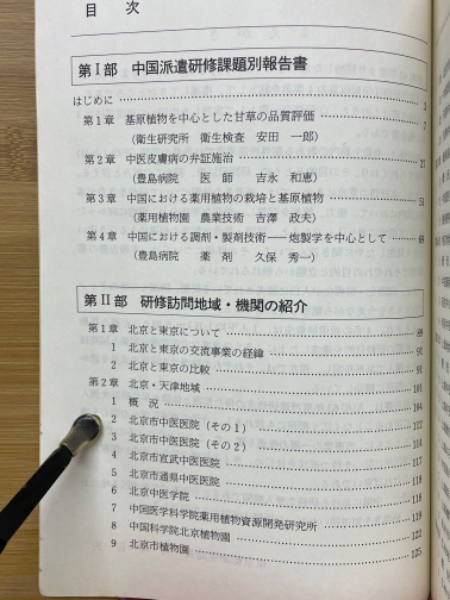 目 次
第Ⅰ部 中国派遣研修課題別報告書
はじめに …… 3
第1章 基原植物を中心とした甘草の品質評価 …… 7
(衛生研究所 衛生検査 安田 一郎)
第2章 中医皮膚病の弁証施治 …… 27
(豊島病院 医師 吉永 和恵)
第3章 中国における薬用植物の栽培と基原植物 …… 51
(薬用植物園 農業技術 吉澤 政夫)
第4章 中国における調剤・製剤技術――炮製学を中心として …… 69
(豊島病院 薬剤 久保 秀一)
第Ⅱ部 研修訪問地域・機関の紹介
第1章 北京と東京について …… 89
1 北京と東京の交流事業の経緯 …… 91
2 北京と東京の比較 …… 91
第2章 北京・天津地域 …… 101
1 概況 …… 104
2 北京市中医医院(その1) …… 112
3 北京市中医医院(その2) …… 114
4 北京市宣武中医医院 …… 117
5 北京市通県中医医院 …… 118
6 北京中医学院 …… 118
7 中国医学科学院薬用植物資源開発研究所 …… 119
8 中国科学院北京植物園 …… 122
9 北京市植物園 …… 125